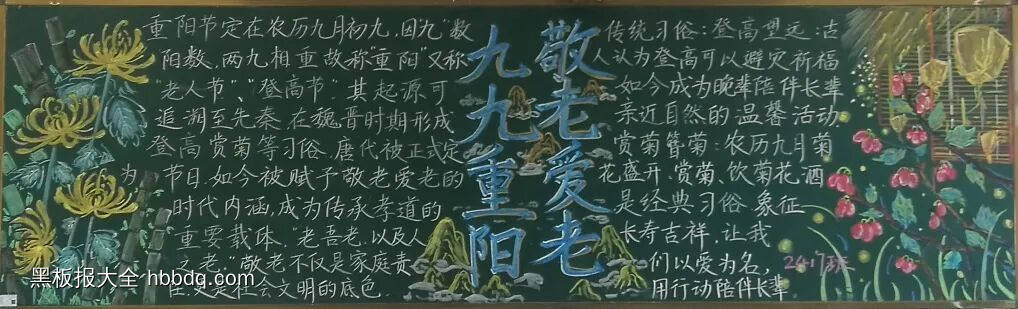 重阳节定在农历九月初九,因“九”数
阳数,两九相重故称“重阳”又称
“老人节”、“登高节”.其起源可
追溯至先秦.在魏晋时期形成
登高赏菊等习俗.唐代被正式定
为节日.如今被赋予敬老爱老的
时代内涵,成为传承孝道的
重要载体.“老吾老,以及人
之老.”敬老不仅是家庭责
任,更是社会文明的底色.
九九重阳
敬老爱老
传统习俗:登高望远:古
人认为登高可以避灾祈福
如今成为晚辈陪伴长辈
亲近自然的温馨活动.
赏菊簪菊:农历九月菊
花盛开,赏菊、饮菊花酒
是经典习俗.象征
长寿吉祥,让我
们以爱为名,
用行动陪伴长辈.
2417班
黑板报大全 hbbdq.com